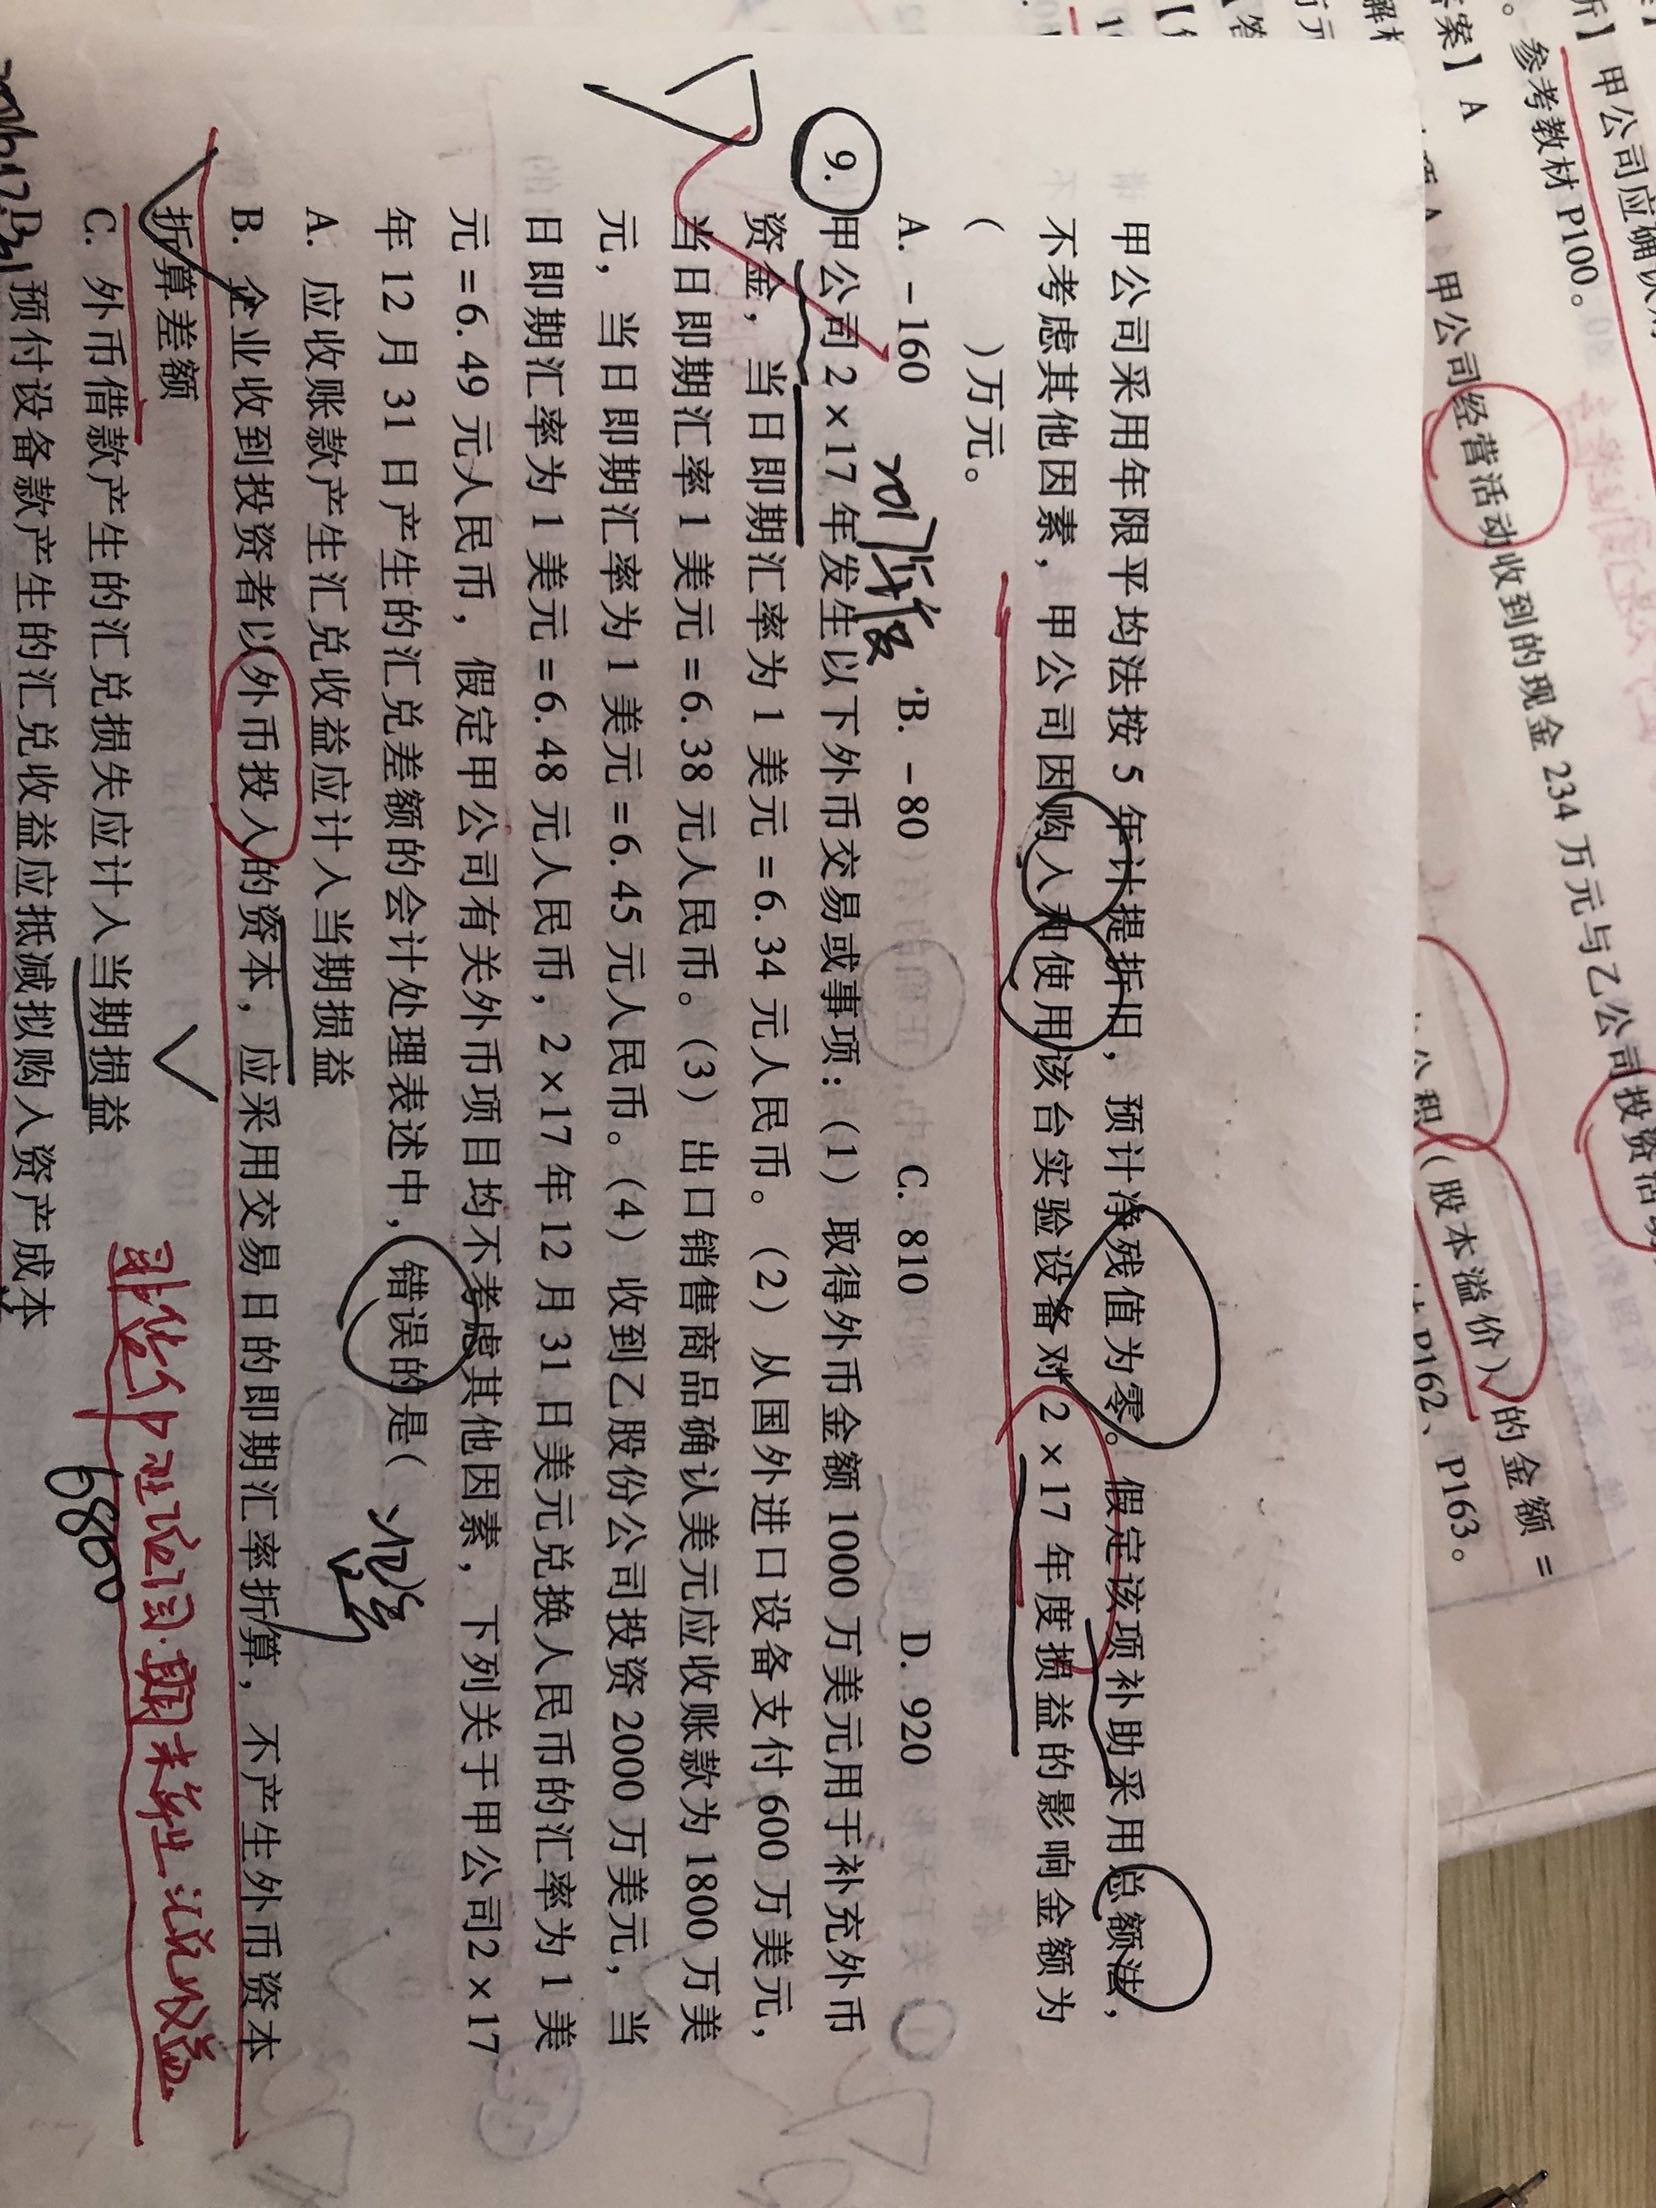 甲公司采用年限平均法按5年计提折旧，预计净残值为零。假定该项补助采用总额法，
不考虑其他因素，甲公司因购入和使用该台实验设备对2×17年度损益的影响金额为
（  ）万元。
A. －160 B. －80 C. 810 D. 920
9. 甲公司2×17年发生以下外币交易或事项：（1）取得外币金额1000万美元用于补充外币
资金，当日即期汇率为1美元=6.34元人民币。（2）从国外进口设备支付600万美元，
当日即期汇率1美元=6.38元人民币。（3）出口销售商品确认美元应收账款为1800万美
元，当日即期汇率为1美元=6.45元人民币。（4）收到乙股份公司投资2000万美元，当
日即期汇率为1美元=6.48元人民币，2×17年12月31日美元兑换人民币的汇率为1美
元=6.49元人民币，假定甲公司有关外币项目均不考虑其他因素，下列关于甲公司2×17
年12月31日产生的汇兑差额的会计处理表述中，错误的是（
A. 应收账款产生汇兑收益应计入当期损益
B. 企业收到投资者以外币投入的资本，应采用交易日的即期汇率折算，不产生外币资本
折算差额
C. 外币借款产生的汇兑损失应计入当期损益
D. 预付设备款产生的汇兑收益应抵减拟购入资产成本
6800
甲公司应确认
。参考教材P100。
答案】A
甲公司经营活动收到的现金234万元与乙公司投资活
公积（股本溢价）的金额=
P162、P163。